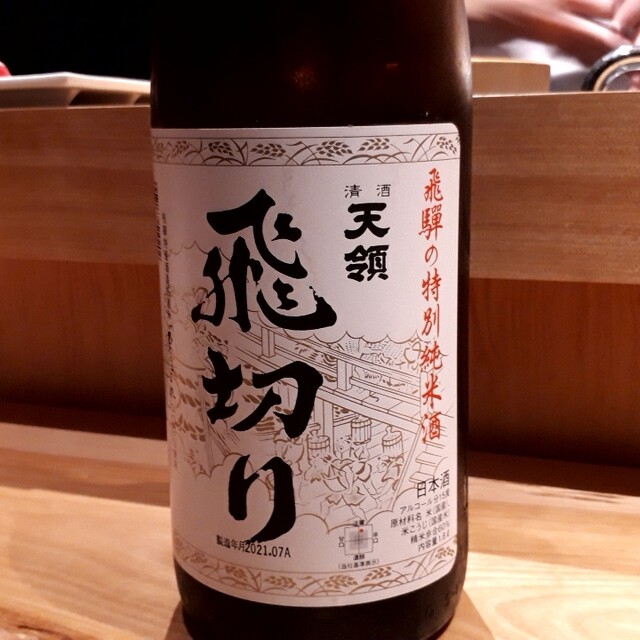 飛騨の特別純米酒
清酒
天領
飛切り
日本酒
アルコール分15度
原材料名 米(国産)
米こうじ(国産米)
精米歩合60%
内容量1.8L
製造年月2021.07A
(当社基準表示)